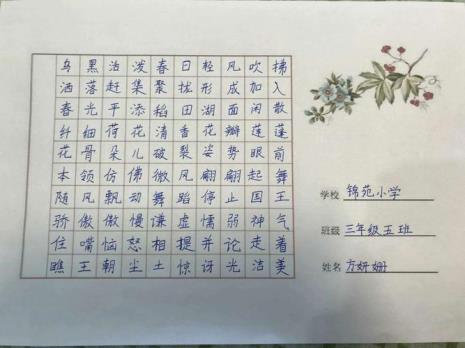 乌黑活泼春日轻风吹拂
洒落赶集聚拢形成加入
春光平添稻田湖面闲散
纤细荷花清香花瓣莲蓬
花骨朵儿破裂姿势眼前
本领仿佛微风翩翩起舞
随风飘动舞蹈停止国王
骄傲傲慢谦虚懦弱神气
住嘴恼怒相提并论走着
瞧王朝尘土惊讶光洁美
学校 锦苑小学
班级 三年级五班
姓名 方妍姗